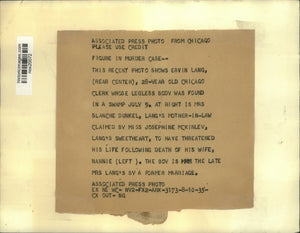 ASSOCIATED PRESS PHOTO FROM CHICAGO
PLEASE USE CREDIT
FIGURE IN MURDER CASE--
THIS RECENT PHOTO SHOWS ERVIN LANG,
(REAR CENTER), 28-YEAR OLD CHICAGO
CLERK WHOSE LEGLESS BODY WAS FOUND
IN A SWAMP JULY 9. AT RIGHT IS MRS
BLANCHE DUNKEL, LANG'S MOTHER-IN-LAW
CLAIMED BY MISS JOSEPHINE MCKINLEY,
LANG'S SWEETHEART, TO HAVE THREATENED
HIS LIFE FOLLOWING DEATH OF HIS WIFE,
NANNIE (LEFT). THE BOY IS THE LATE
MRS LANG'S BY A FORMER MARRIAGE.
ASSOCIATED PRESS PHOTO
EX NE WC- NV2-FX2-ARX-3173-8-10-35-
CX OUT- NG